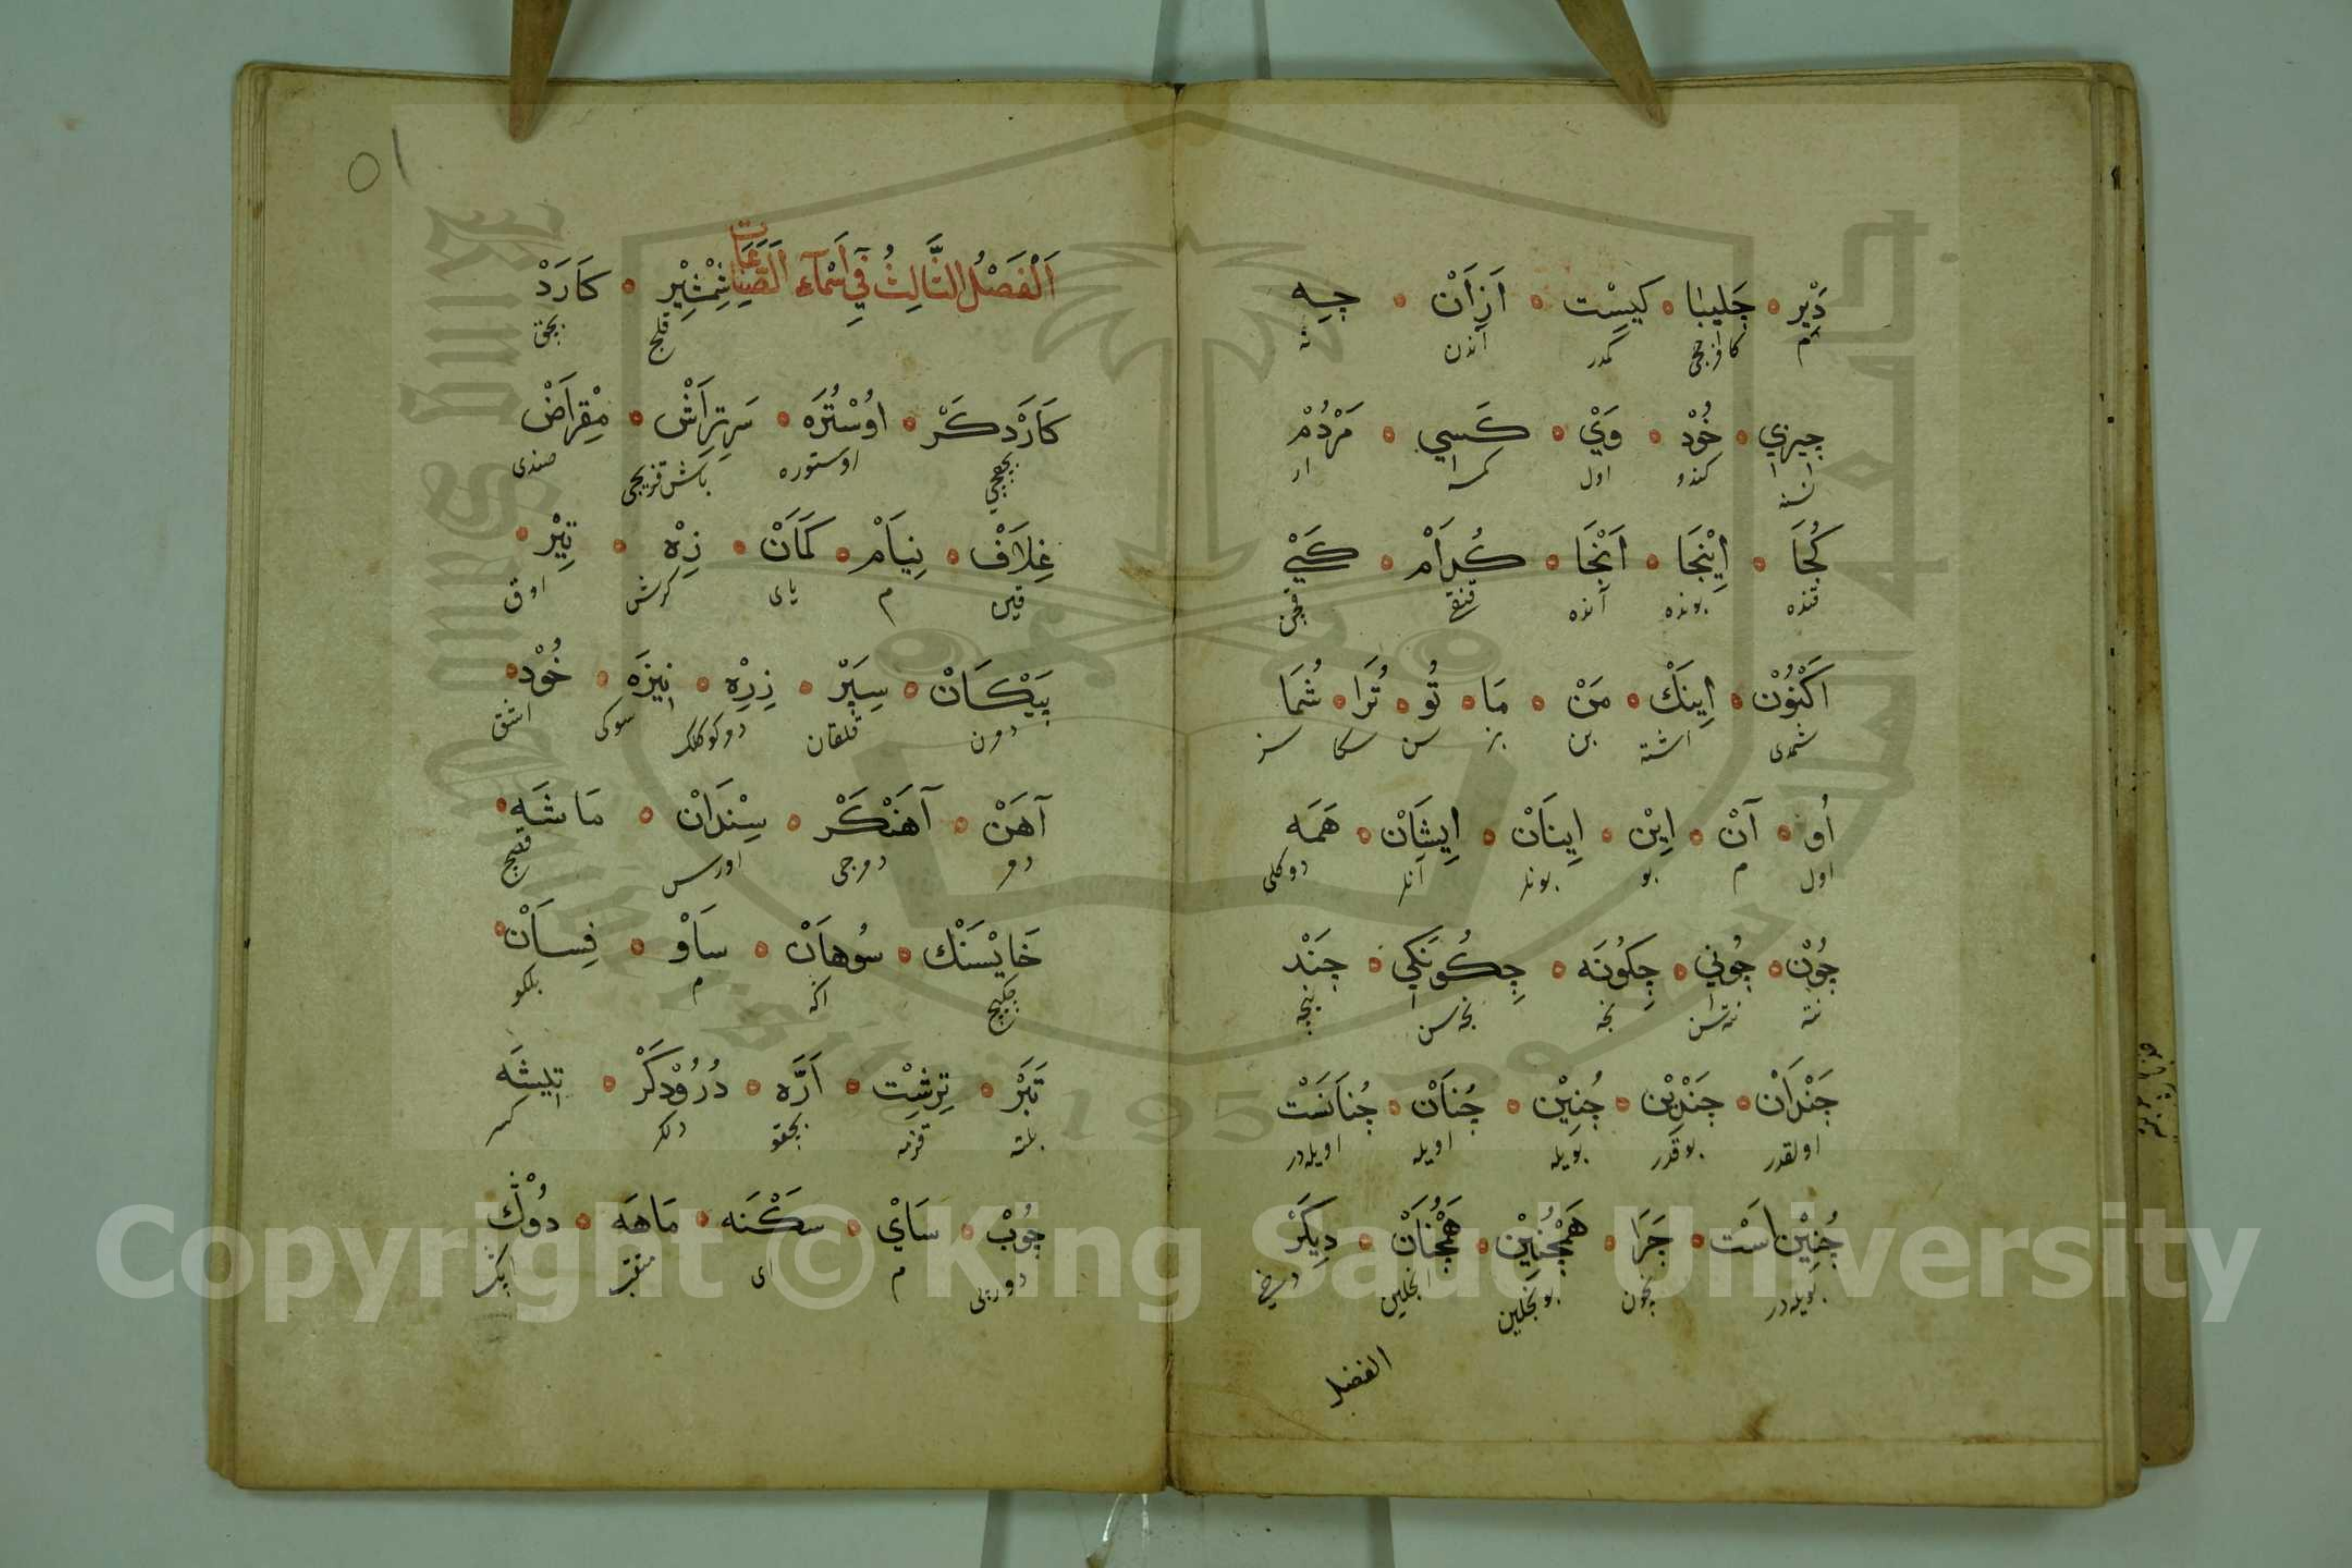 دَيْر جَلِيبَا كِيسِْت اَزْاَنْ چِه
م كدر آندن نه
چيزي خُوْد وَيْ كَسِي مَرْدُمْ
كندو اول كمسه ار
كُجَا اِيْنْجَا اَنْجَا كُدَاَمْ كَيْ
قنده بونده آنده قنغى قچن
اَكْنُوْنْ اِينَكْ مَنْ مَا تُو تُرَا شُمَا
شمدى اشته بن بز سن سكا سز
اُو آنْ اِيْن اِينَاَنْ اِيشَاَنْ هَمَه
اول م بو بونلر آنلر دوكلى
چُوْن چُونِي چِكُونَه چِكُونَكِي چَنْد
نته نته سن نجه نجه سن نيجه
چَنْدَاَنْ چَنْدِيْن چُنِيْن چُنَاَنْ چُنَاَنَسْت
اولقدر بوقدر بويله اويله اويله در
چُنِيْن اَسْت چَرَا هَمْچُنِيْن هَمْچُنَاَنْ دِيكَرْ
بويله در نيچون بونجلين انجلين دخى
الفصل
٥١
اَلْفَصْلُ الثَّالِثُ فِي اَسْمَآءِ الصِّنَاعَات شِمْشِيْر كَارَدْ
قلج بچق
كَارَدْكَرْ اوُسْتُرَه سَرتِرَاَشْ مِقْرَاَضْ
بچقجى اوستوره باش قزيجى صندى
غِلَاَفْ نِيَاَمْ كَمَاَنْ زِهْ تِيْر
قين م ياى كرش اوق
پَيْكَاَنْ سِپَرْ زِرِهْ نِيزَه خُوْد
دمرن قلقان سوكى اشق
آهَنْ آهَنْكَرْ سِنْدَاَنْ مَاشَه
دمر دمرجى اورس قصج
خَايْسَنْك سُوهَاَنْ سَاَوْ فِسَاَنْ
چكيج اكه م بلكو
تَبَرْ تِرشِْت اَرَّه دُرُوْدكَرْ تِيشَه
بلته قزمه بچقو دلكر كسر
چُوبْ سَاَيْ سكْنَه مَاهَه دوُكْ
م اى منقب ايك